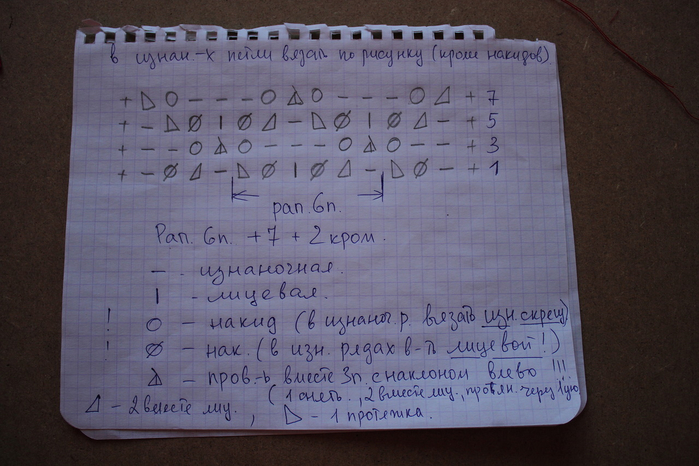 в изнан-х петли вязать по рисунку (кроме накидов)
+ ◺ O - - - O ⍋ O - - - O ◿ + 7
+ - ◺ Ø I Ø ◿ - ◺ Ø I Ø ◿ - + 5
+ - - O ⍋ O - - - O ⍋ O - - + 3
+ - Ø ◿ - ◺ Ø I Ø ◿ - ◺ Ø - + 1
рап. 6п.
Рап. 6п. + 7 + 2 кром.
- - изнаночная.
I - лицевая.
! O - накид (в изнаноч. р. вязать изн. скрещ)
! Ø - нак. (в изн. рядах в-ть лицевой!)
⍋ - пров-ь вместе 3п. с наклоном влево !!!
(1 снять, 2 вместе лиц., протян. через 1ую)
◿ - 2 вместе лиц., ◺ - 1 протяжка.